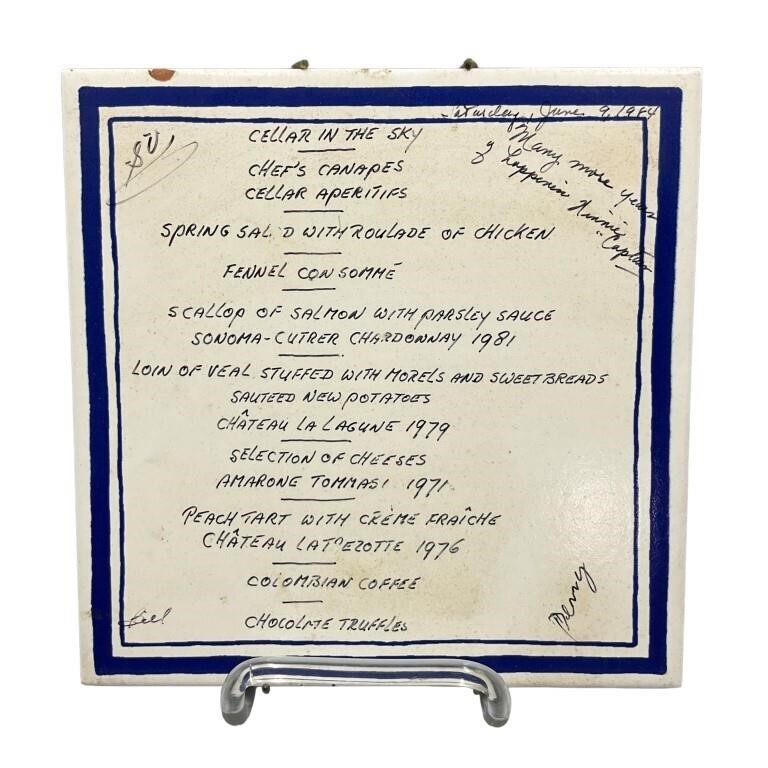 Saturday, June 9, 1984
Many more years
of happiness
"Captain
CELLAR IN THE SKY
CHEF'S CANAPES
CELLAR APERITIFS
SPRING SAL D WITH ROULADE OF CHICKEN
FENNEL CONSOMMÉ
SCALLOP OF SALMON WITH PARSLEY SAUCE
SONOMA-CUTRER CHARDONNAY 1981
LOIN OF VEAL STUFFED WITH MORELS AND SWEETBREADS
SAUTEED NEW POTATOES
CHÂTEAU LA LAGUNE 1979
SELECTION OF CHEESES
AMARONE TOMMASI 1971
PEACH TART WITH CRÈME FRAÎCHE
CHÂTEAU LATREZOTTE 1976
COLOMBIAN COFFEE
CHOCOLATE TRUFFLES
Bill
Perry